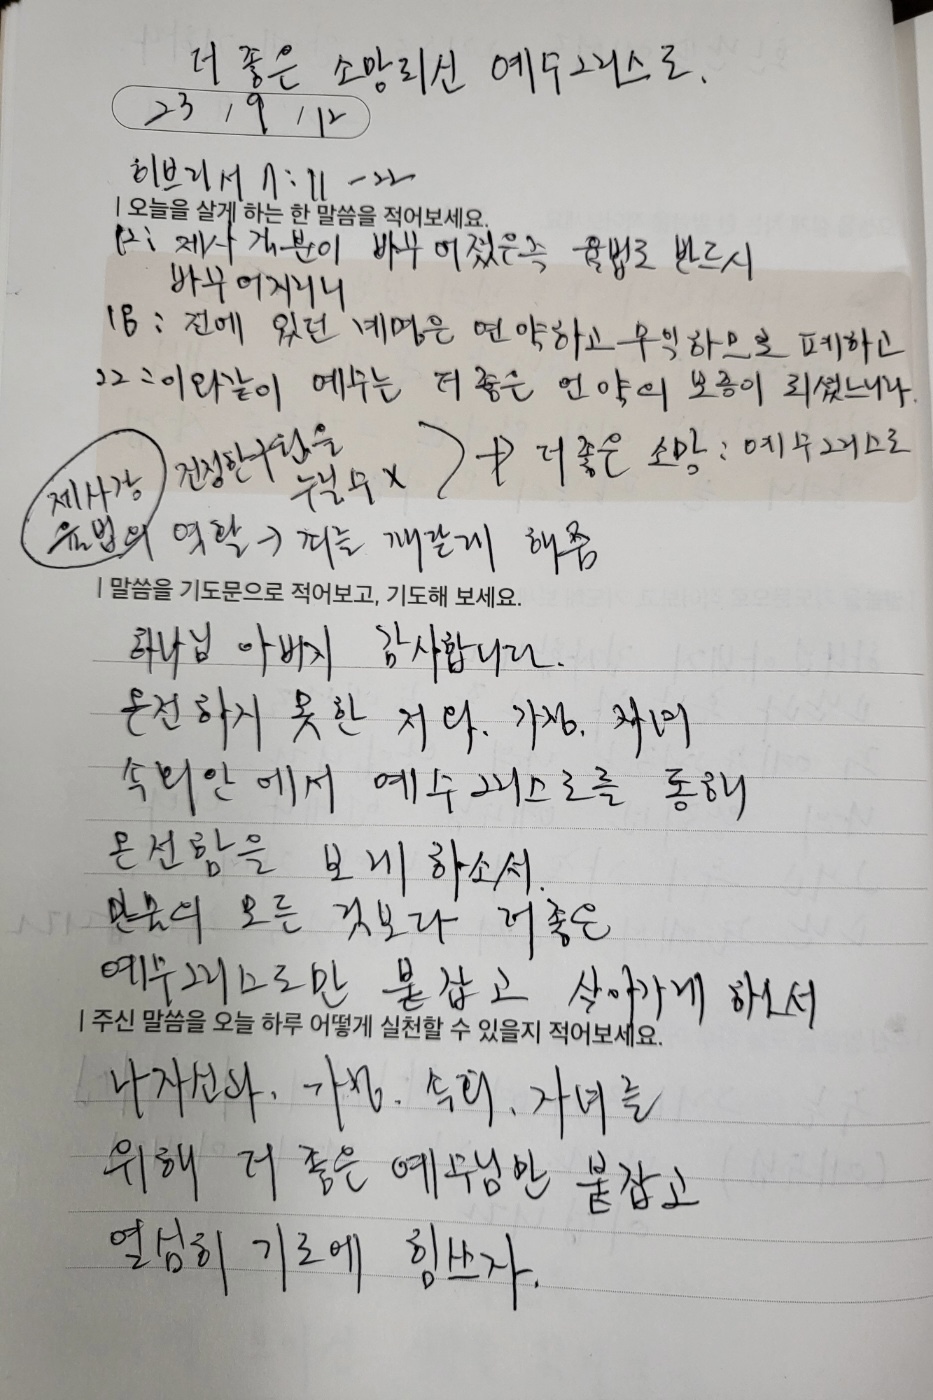 더 좋은 소망되신 예수그리스도.
23 / 9 / 12
히브리서 7:11 -22
| 오늘을 살게 하는 한 말씀을 적어보세요.
12: 제사 직분이 바꾸어졌은즉 율법도 반드시
바꾸어지리니
18: 전에 있던 계명은 연약하고 무익하므로 폐하고
22: 이와같이 예수는 더 좋은 언약의 보증이 되셨느니라.
진정한 구원을
누릴 수 x → 더 좋은 소망: 예수그리스도
제사장
율법의 역할 → 죄를 깨닫게 해줌
| 말씀을 기도문으로 적어보고, 기도해 보세요.
하나님 아버지 감사합니다.
온전하지 못한 저와, 가정, 자녀
속회안에서 예수그리스도를 통해
온전함을 보게 하소서.
만물의 모든 것보다 더좋은
예수그리스도만 붙잡고 살아가게 하소서
| 주신 말씀을 오늘 하루 어떻게 실천할 수 있을지 적어보세요.
나 자신과, 가정, 속회, 자녀를
위해 더 좋은 예수님만 붙잡고
열심히 기도에 힘쓰자.